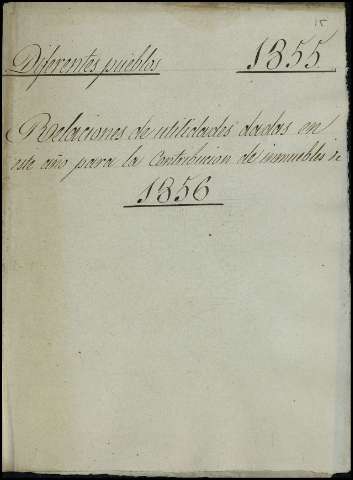 15
Diferentes pueblos 1855
Relaciones de utilidades dadas en
este año para la Contribucion de inmuebles de
1856